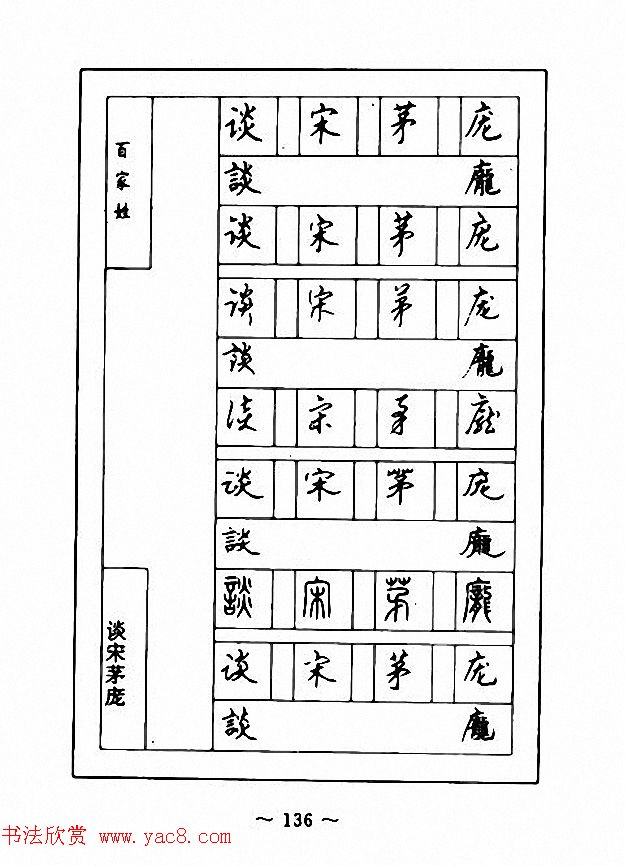 百家姓
谈 宋 茅 庞
談 龐
谈 宋 茅 庞
谈 宋 茅 庞
談 龐
谈 宋 茅 龐
谈 宋 茅 庞
談 龐
談 宋 茅 龐
谈 宋 茅 庞
談 龐
谈宋茅庞
~ 136 ~
书法欣赏 www.yac8.com